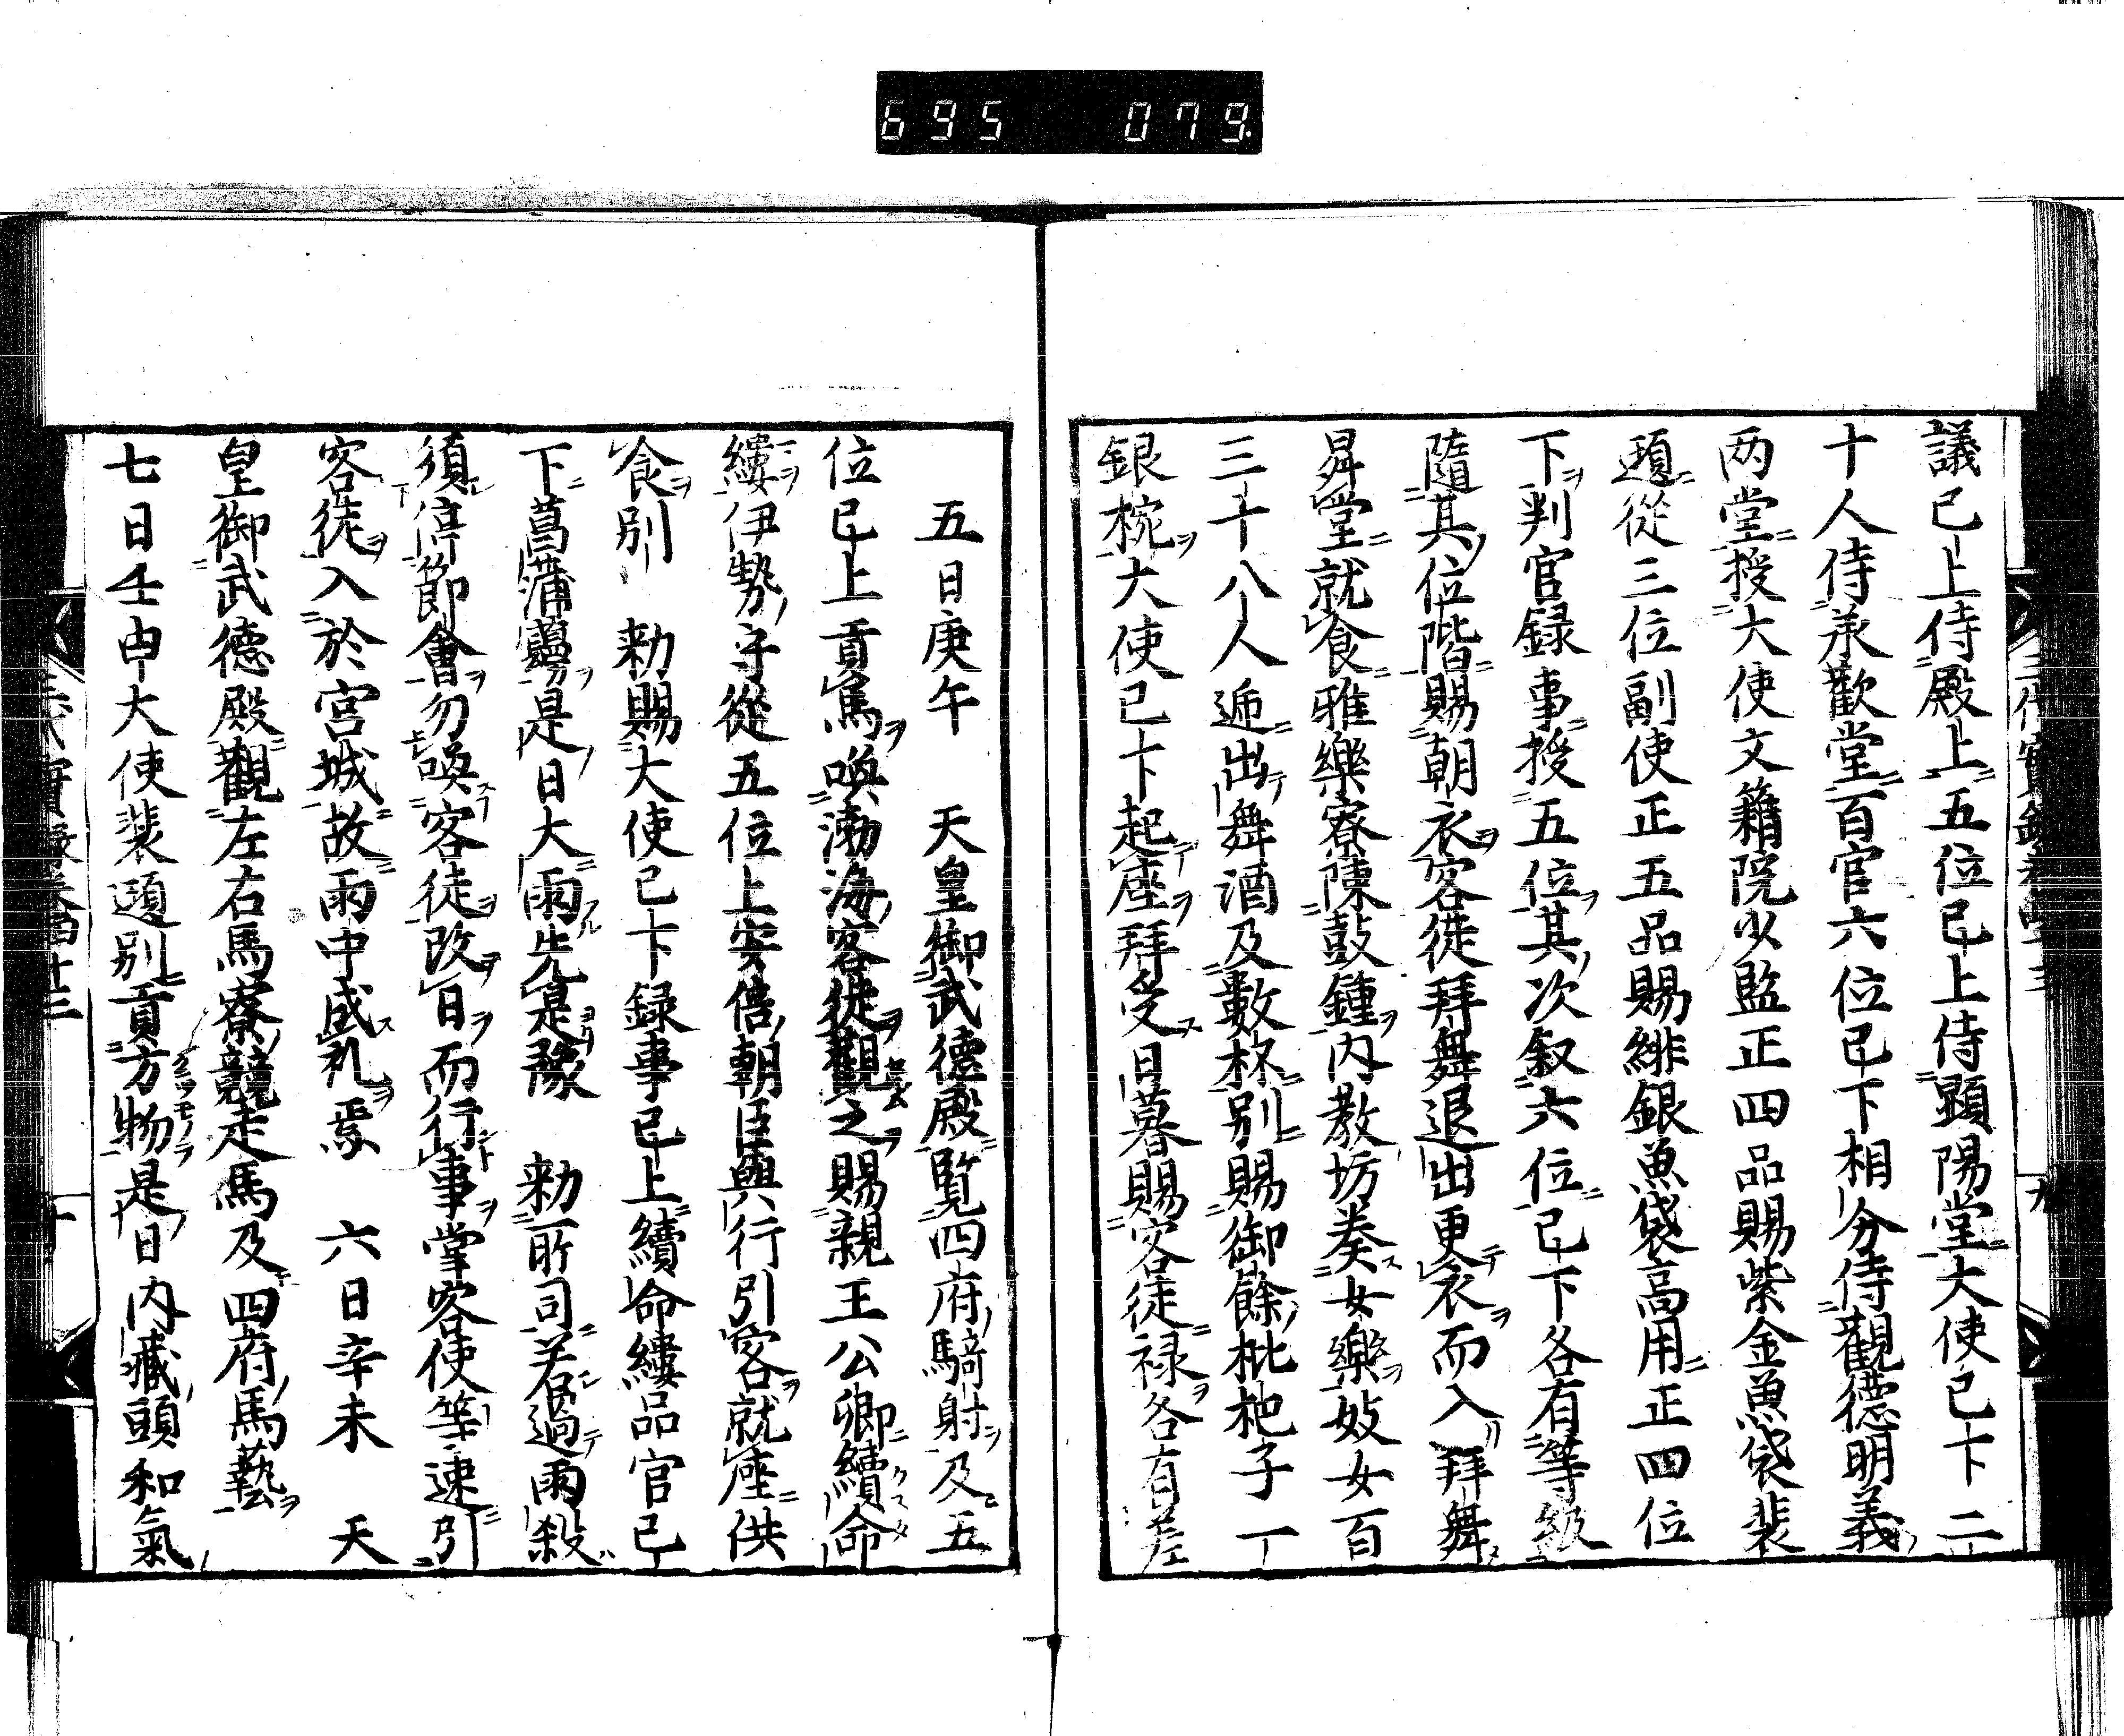 695 079
議已上侍殿上五位已上侍顕陽堂大使已下二
十人侍承歡堂百官六位已下相分侍觀德明義
两堂授大使文籍院少監正四品賜紫金魚袋裴
頲從三位副使正五品賜緋銀魚袋高用正四位
下判官録事授五位其次叙六位已下各有等級
隨其位階賜朝衣客徒拜舞退出更衣而入拜舞
昇堂就食雅樂寮陳鼓鍾内教坊奏女樂妓女百
三十八人逓出舞酒及數杯別賜御餘枇杷子一
銀椀大使已下起座拜受日暮賜客徒禄各有差
五日庚午　天皇御武德殿覧四府騎射及五
位已上貢馬喚渤海客徒觀之賜親王公卿續命
縷伊勢守從五位上安倍朝臣興行引客就座供
食別　勅賜大使已下録事已上續命縷品官已
下菖蒲鬘是日大雨先是豫　勅所司若遇雨殺
須停節會勿喚客徒改日而行事掌客使等速引
客徒入於宮城故雨中成礼焉　六日辛未　天
皇御武德殿觀左右馬寮競走馬及四府馬藝
七日壬申大使裴頲別貢方物是日内藏頭和氣